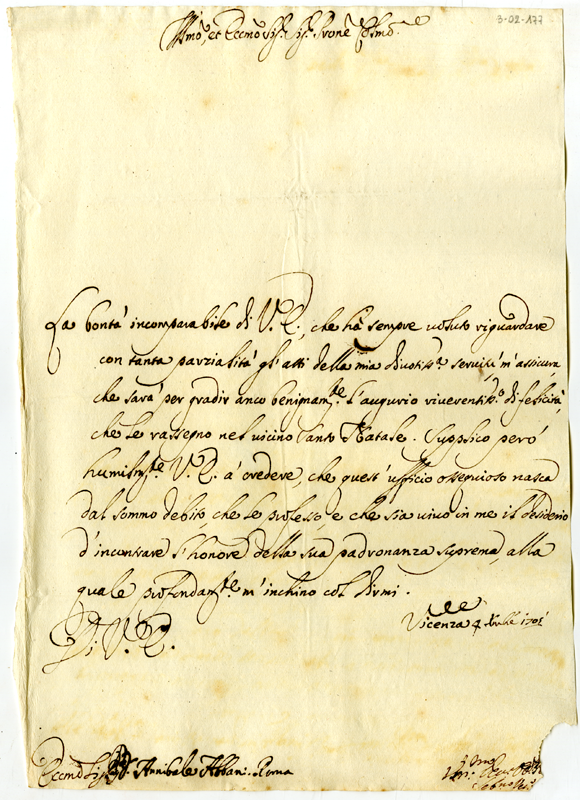 3-02-177
Ill.mo, et Ecc.mo Sig.r Sig.r P̄rone Col.mo
La bontà incomparabile di V. E., che hà sempre voluto riguardare
con tanta parzialità gl'atti della mia divotiss.a servitù m'assicura
che sarà per gradir anco benignam.te l'augurio riverentiss.o di felicità,
che le rassegno nel vicino Santo Natale. Supplico però
humilm.te V. E. à credere, che quest'ufficio ossequioso nasca
dal sommo debito, che le professo e che sia vivo in me il desiderio
d'incontrare l'honore della sua padronanza suprema, alla
quale profondam.te m'inchino col dirmi.
Di V. E.
Vicenza 4 Xmbre 1701
Ecc.mo Sig.r D. Annibale Albani. Roma